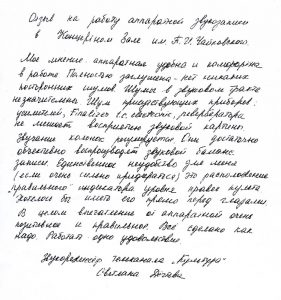 Отзыв на работу аппаратной звукозаписи
в Концертном Зале им. П. И. Чайковского.
Мое мнение: аппаратная удобна и комфортна
в работе. Полностью заглушена - нет никаких
посторонних шумов. Шумов в звуковом тракте
незначительны. Шум присутствующих приборов:
усилителей, Finalizer t.c. electronic, ревербератора
не мешает восприятию звуковой картины.
Звучание колонок регулируется. Они достаточно
объективно воспроизводят звуковой баланс
записи. Единственное неудобство для меня
(если очень сильно придираться) это расположение
"правильного" индикатора уровня правее пульта
Хотелось бы иметь его прямо перед глазами.
В целом впечатление от аппаратной очень
позитивное и правильное. Всё сделано как
надо. Работать одно удовольствие.
Звукорежиссёр телеканала "Культура"
Светлана